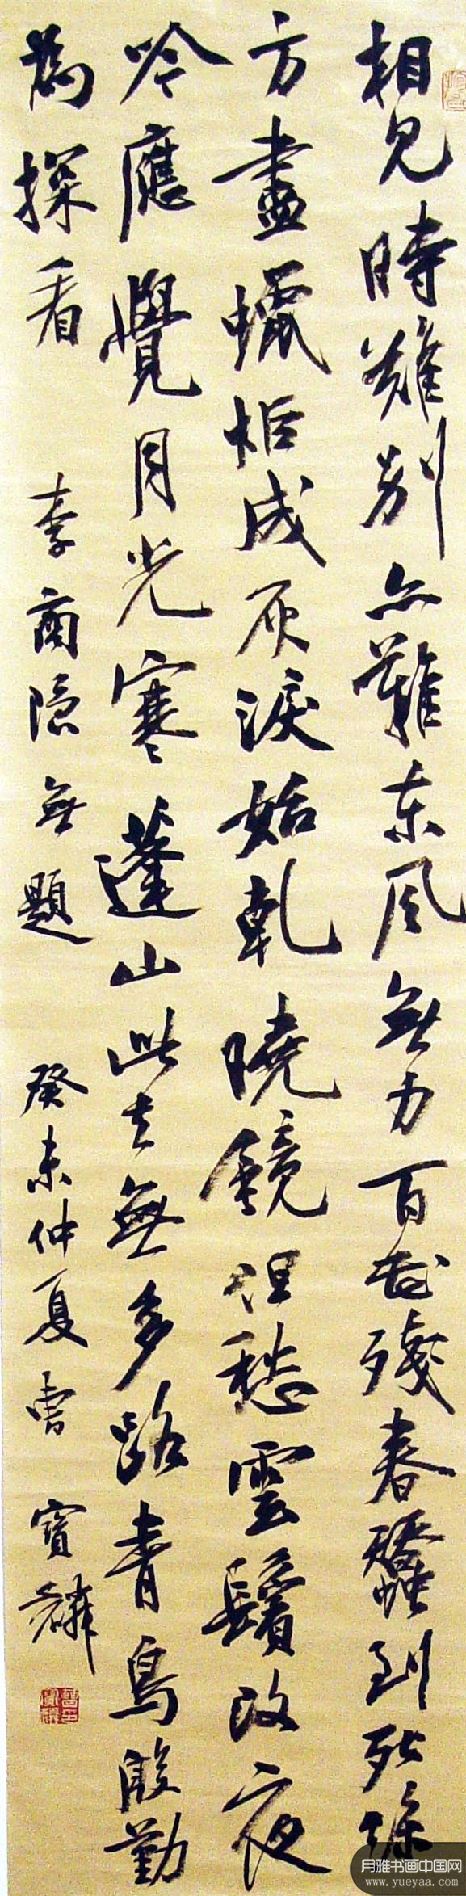 相見時難別亦難東風無力百花殘春蠶到死絲
方盡蠟炬成灰淚始乾曉鏡但愁雲鬢改夜
吟應覺月光寒蓬山此去無多路青鳥殷勤
為探看 李商隱無題 癸未仲夏曹寶麟
月雅书画中国网
www.yueyaa.com